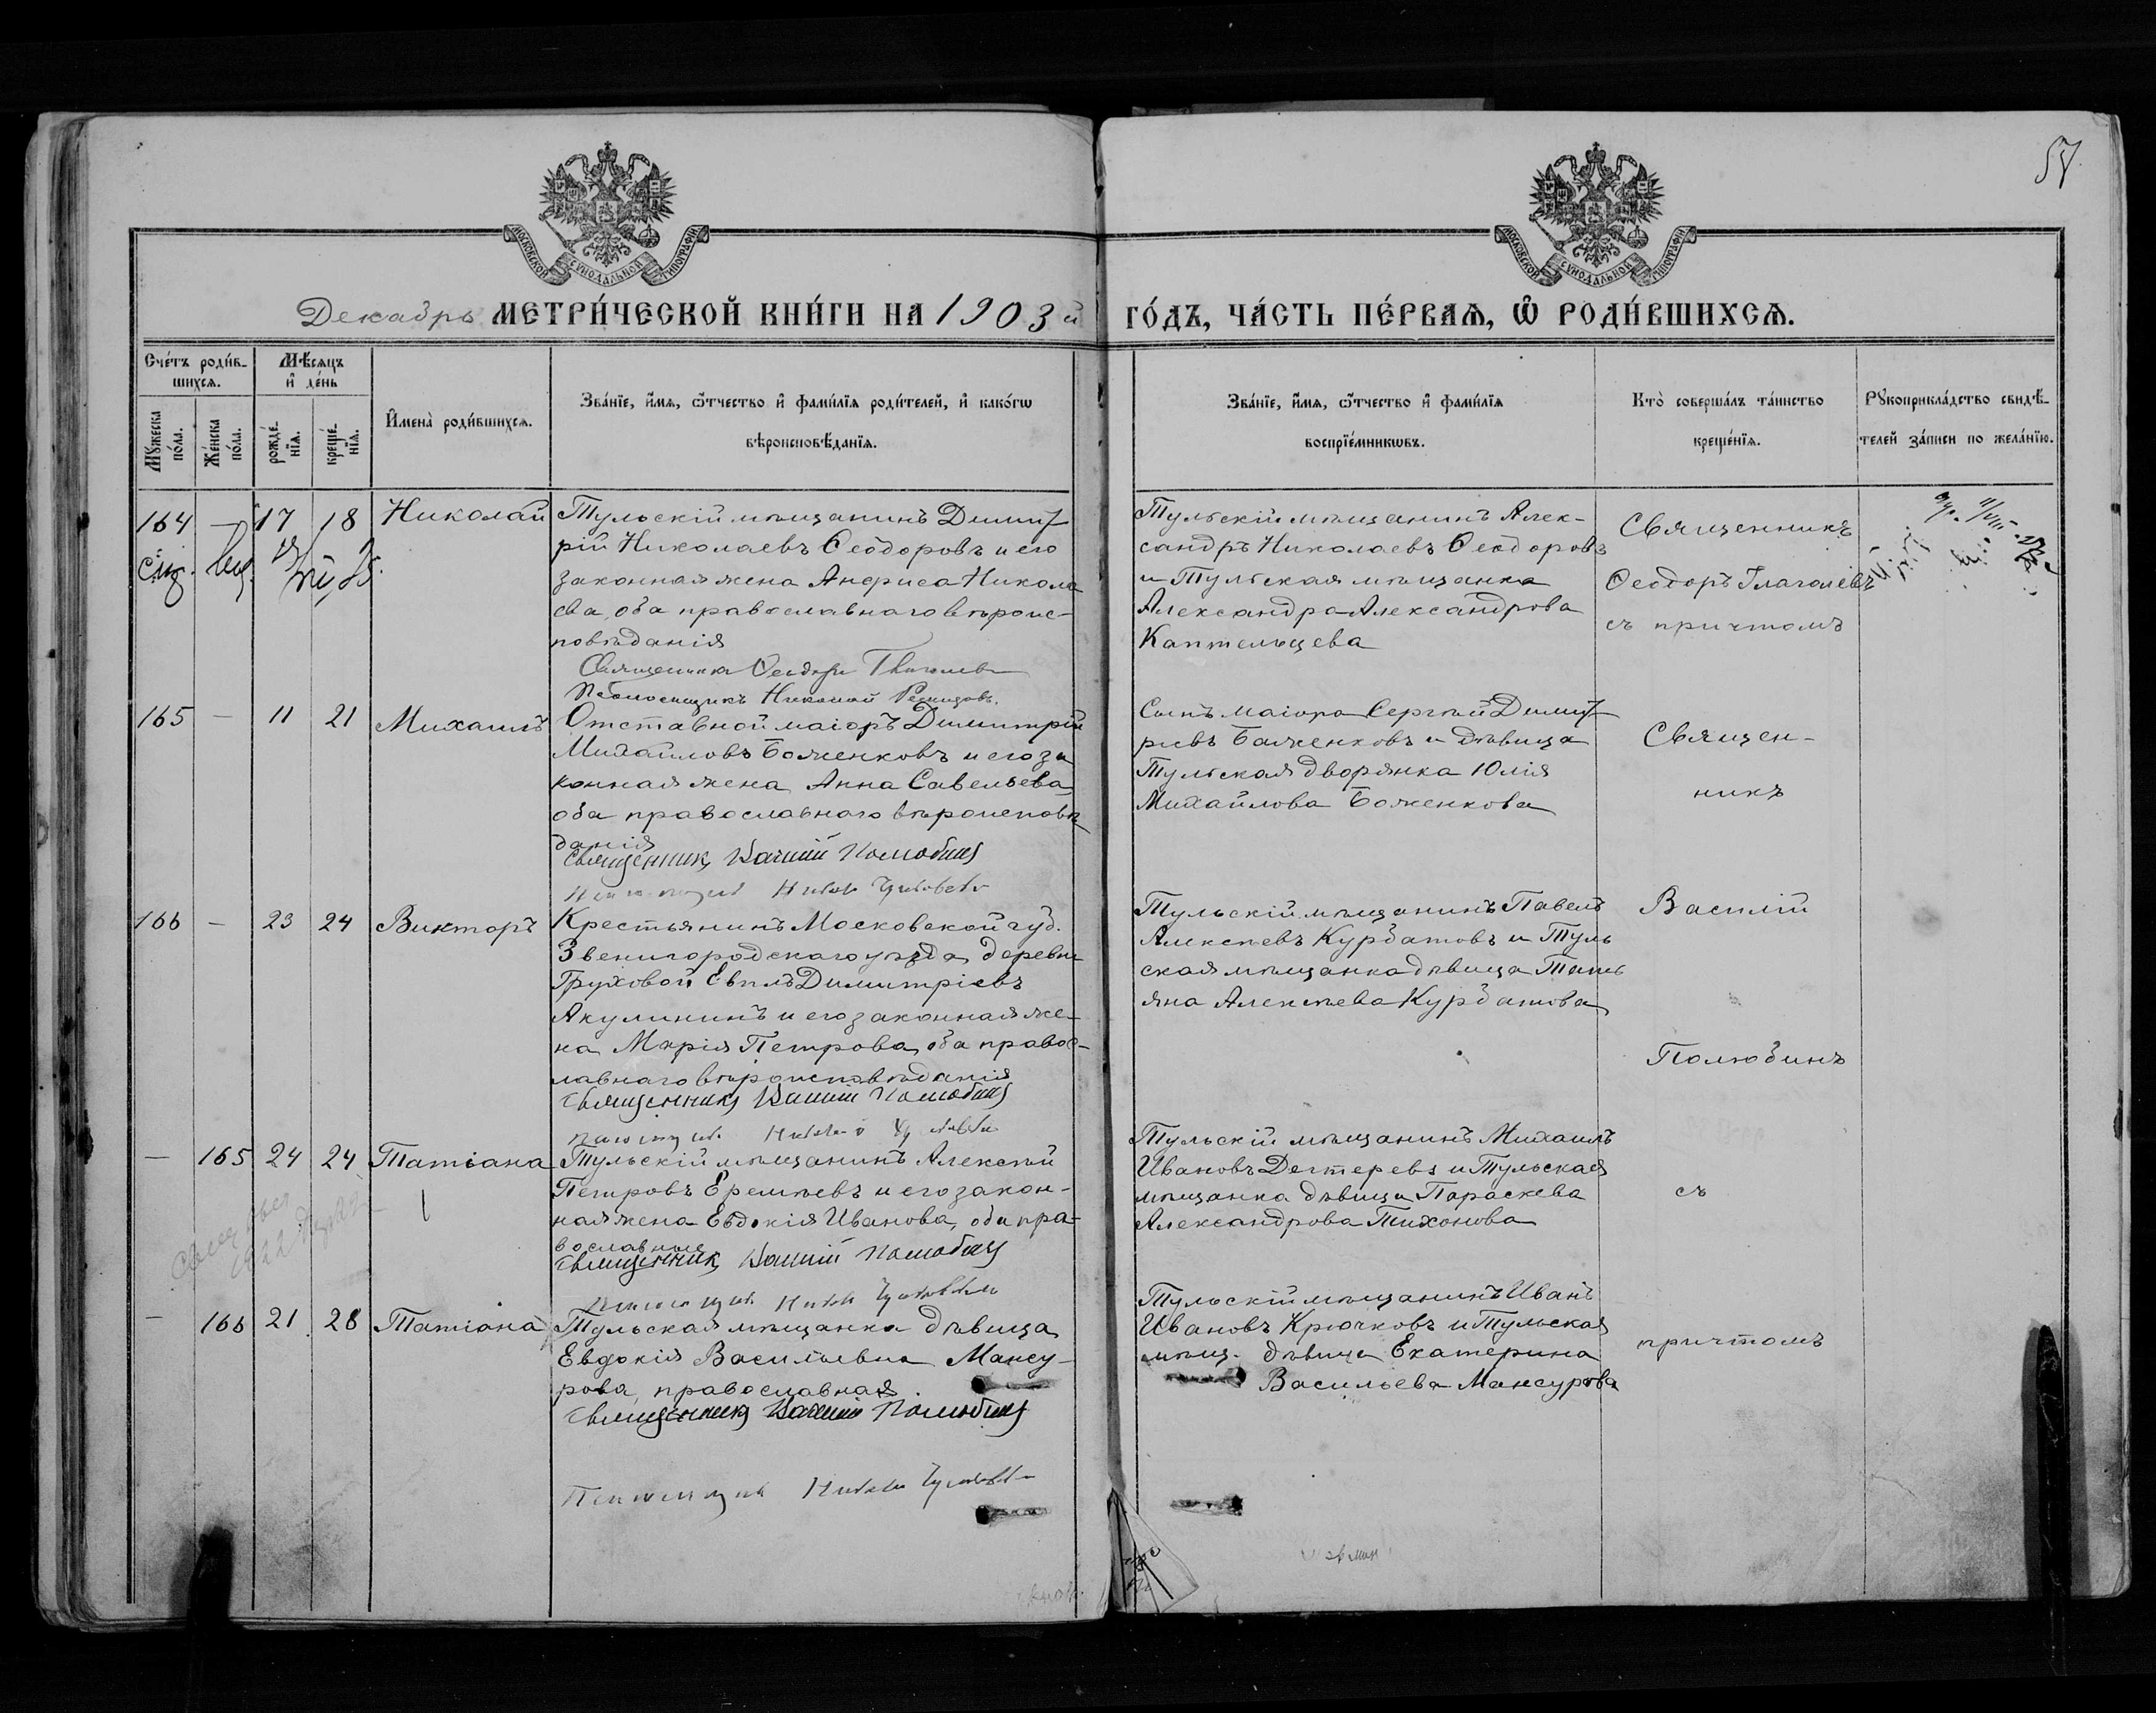 57
МОСКОВСКОЙ СѴНОДАЛЬНОЙ ТИПОГРАФІИ
МОСКОВСКОЙ СѴНОДАЛЬНОЙ ТИПОГРАФІИ
Декабрь МЕТРИ́ЧЕСКОЙ КНИ́ГИ НА 1903 й
ГО́ДЪ, ЧА́СТЬ ПЕ́РВАѦ, Ѽ РОДИ́ВШИХСѦ.
Сче́тъ роди́в-
шихсѧ.
Мѣ́сяцъ
и҆ де́нь
Мꙋ́жеска
по́ла.
Же́нска
по́ла.
рожде́-
нїѧ.
креще́-
нїѧ.
И҆мена̀ роди́вшихсѧ.
Зва́нїе, и҆́мѧ, ѻ҆́тчество и҆ фами́лїѧ роди́телей, и҆ како́гѡ
вѣроисповѣ́данїѧ.
Зва́нїе, и҆́мѧ, ѻ҆́тчество и҆ фами́лїѧ
воспрїе́мникѡвъ.
Кто̀ соверша́лъ та́инство
креще́нїѧ.
Рꙋкоприкла́дство свидѣ́-
телей за́писи по жела́нїю.
164 — 17 18 Николай
Тульскій мѣщанинъ Димит
рій Николаевъ Ѳеодоровъ и его
законная жена Анфиса Никола
ева, оба православнаго вѣроис-
повѣданія
Священникъ Ѳеодоръ Глаголевъ
Псаломщикъ Николай
Тульскій мѣщанинъ Алек-
сандръ Николаевъ Ѳеодоровъ
и Тульская мѣщанка
Александра Александрова
Каптельцева
Священникъ
Ѳеодоръ Глаголевъ
съ причтомъ
165 — 11 21 Михаилъ
Отставной маіоръ Димитрій
Михайловъ Баженковъ и его за
конная жена Анна Савельева
оба православнаго вѣроисповѣ
данія
Священникъ Василій Полюбинъ
Сынъ маіора Сергѣй Димит
ріевъ Баженковъ и дѣвица
Тульская дворянка Юлія
Михайлова Баженкова
Священ-
никъ
166 — 23 24 Викторъ
Крестьянинъ Московской губ.
Звенигородскаго уѣзда, деревни
Груховой Евпл Димитріевъ
Акулининъ и его законная же-
на Марія Петрова, оба правос-
лавнаго вѣроисповѣданія
Священникъ Василій Полюбинъ
Тульскій мѣщанинъ Павелъ
Алексѣевъ Курбатовъ и Туль
ская мѣщанка дѣвица Тать
яна Алексѣева Курбатова
Василій
Полюбинъ
— 165 24 24 Татіана
Тульскій мѣщанинъ Алексѣй
Петровъ Еремѣевъ и его закон-
ная жена Евдокія Иванова, оба пра-
вославные
Священникъ Василій Полюбинъ
Тульскій мѣщанинъ Михаилъ
Ивановъ Дегтеревъ и Тульская
мѣщанка дѣвица Параскева
Александрова Тихонова
съ
— 166 21 28 Татіана
Тульская мѣщанка дѣвица
Евдокія Васильевна Мансу-
рова, православная.
Священникъ Василій Полюбинъ
Тульскій мѣщанинъ Иванъ
Ивановъ Крючковъ и Тульская
мѣщ. дѣвица Екатерина
Васильева Мансурова
причтомъ